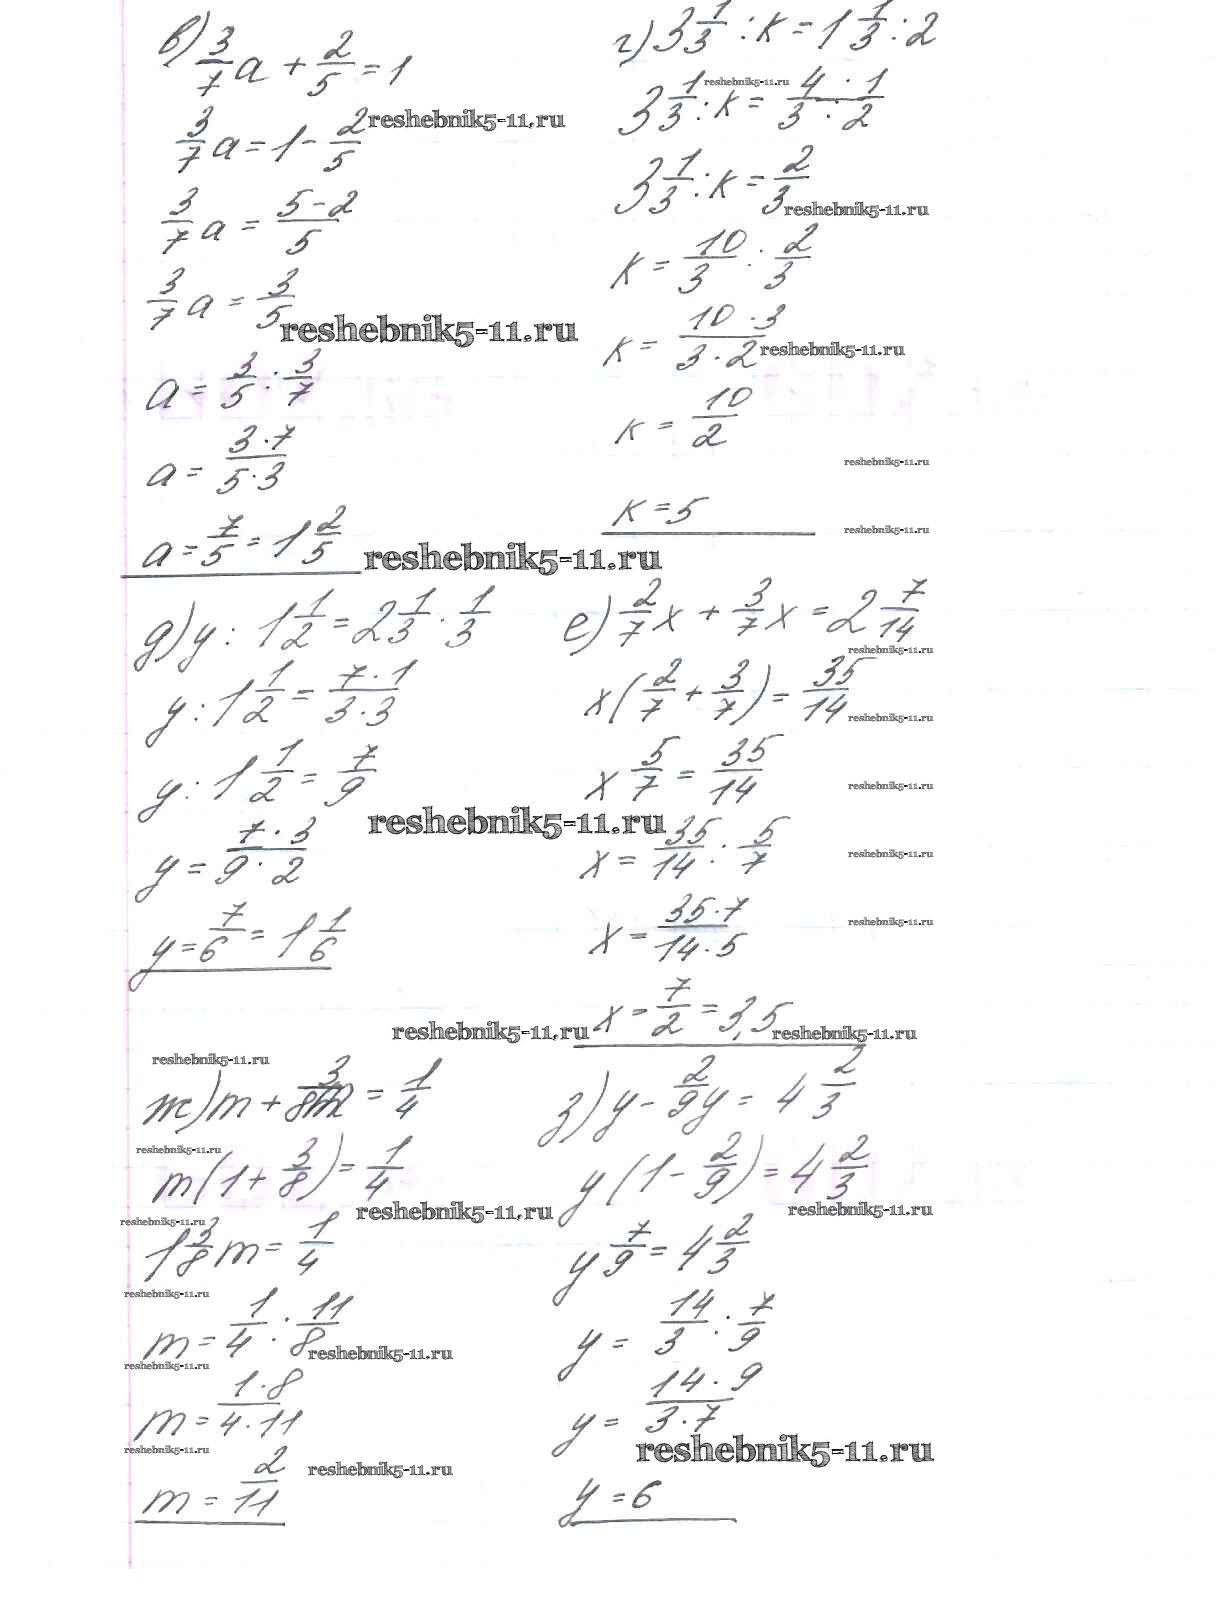 в) 3/7 a + 2/5 = 1
3/7 a = 1 - 2/5
reshebnik5-11.ru
3/7 a = (5-2)/5
3/7 a = 3/5
reshebnik5-11.ru
a = 3/5 : 3/7
a = (3·7)/(5·3)
a = 7/5 = 1 2/5
reshebnik5-11.ru
г) 3 1/3 : k = 1 1/3 : 2
reshebnik5-11.ru
3 1/3 : k = (4·1)/(3·2)
3 1/3 : k = 2/3
reshebnik5-11.ru
k = 10/3 : 2/3
k = (10·3)/(3·2)
reshebnik5-11.ru
k = 10/2
reshebnik5-11.ru
k = 5
reshebnik5-11.ru
д) y : 1 1/2 = 2 1/3 · 1/3
y : 1 1/2 = (7·1)/(3·3)
y : 1 1/2 = 7/9
reshebnik5-11.ru
y = (7·3)/(9·2)
y = 7/6 = 1 1/6
е) 2/7 x + 3/7 x = 2 7/14
reshebnik5-11.ru
x(2/7 + 3/7) = 35/14
reshebnik5-11.ru
x 5/7 = 35/14
reshebnik5-11.ru
x = 35/14 : 5/7
reshebnik5-11.ru
x = (35·7)/(14·5)
reshebnik5-11.ru
reshebnik5-11.ru
x = 7/2 = 3,5
reshebnik5-11.ru
reshebnik5-11.ru
ж) m + 3/8 m = 1/4
reshebnik5-11.ru
m(1 + 3/8) = 1/4
reshebnik5-11.ru
reshebnik5-11.ru
1 3/8 m = 1/4
reshebnik5-11.ru
m = 1/4 : 11/8
reshebnik5-11.ru
reshebnik5-11.ru
m = (1·8)/(4·11)
reshebnik5-11.ru
reshebnik5-11.ru
m = 2/11
з) y - 2/9 y = 4 2/3
y(1 - 2/9) = 4 2/3
reshebnik5-11.ru
y 7/9 = 4 2/3
y = 14/3 : 7/9
y = (14·9)/(3·7)
reshebnik5-11.ru
y = 6